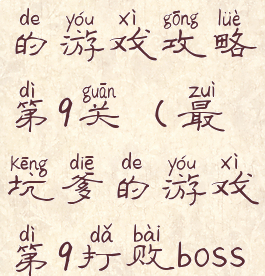 de yóu xì gōng lüè
的游戏攻略
dì guān zuì
第9关(最
kēng diē de yóu xì
坑爹的游戏
dì dǎ bài
第9打败boss